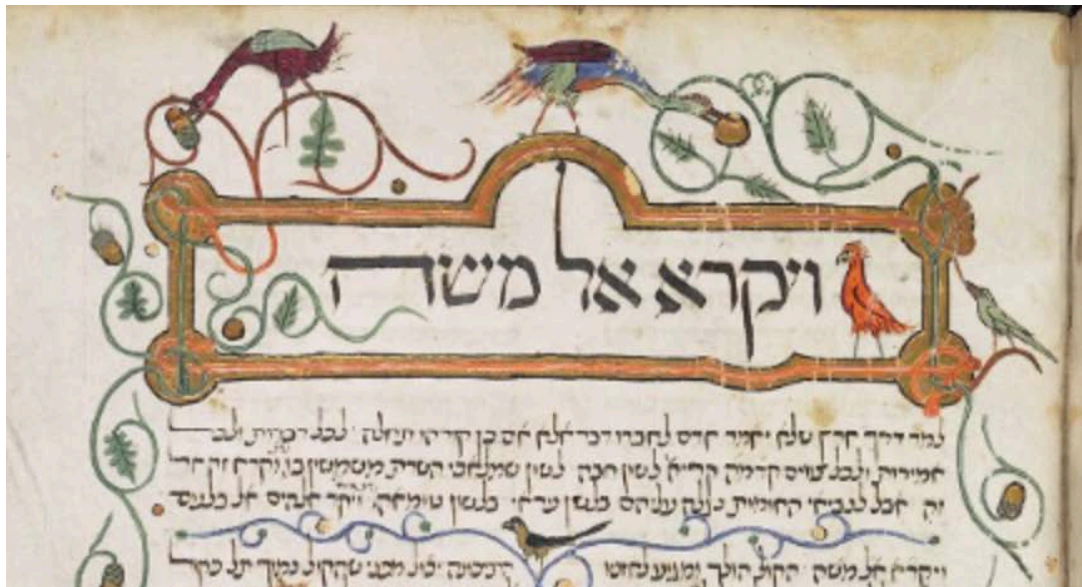 ויקרא אל משה
למד דרך ארץ שלא יאמר אדם לחברו דבר אלא אם כן קורהו תחלה לכל דברות ולכל
אמירות ולכל צוויים קדמה קריאה לשון חבה לשון שמלאכי השרת משתמשין בו וקרא זה אל
זה אבל לנביאי האומות נגלה עליהם בלשון עראי בלשון טומאה ויקר אלהים אל בלעם
ויקרא אל משה הקול הולך ומגיע לאזניו